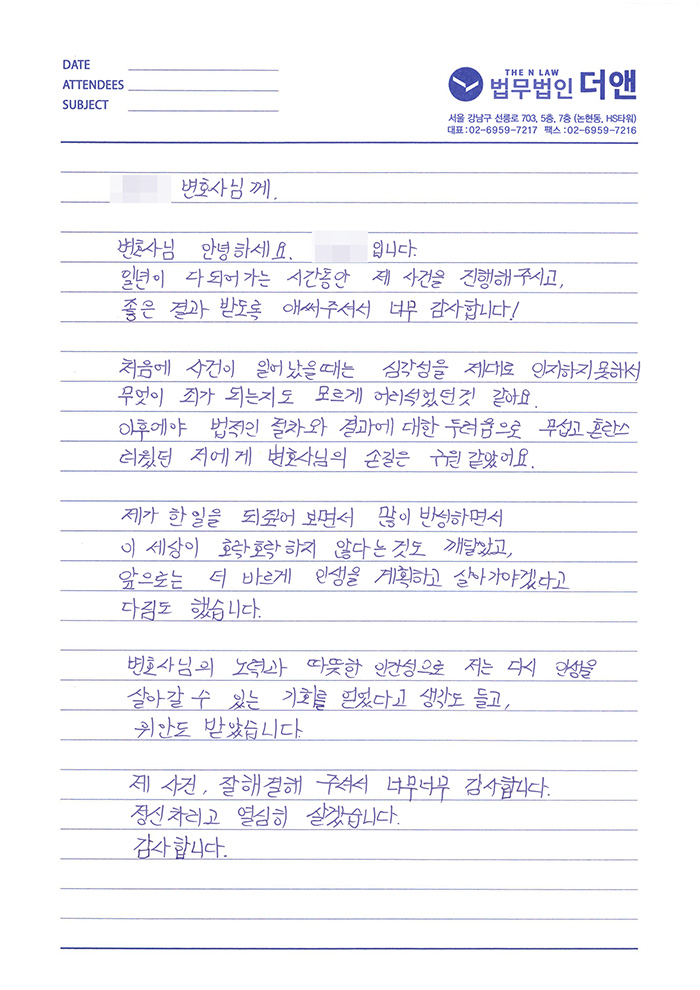 DATE
ATTENDEES
SUBJECT
THE N LAW
법무법인 더앤
서울 강남구 선릉로 703, 5층, 7층 (논현동, HS타워)
대표 : 02-6959-7217 팩스 : 02-6959-7216
변호사님 께,
변호사님 안녕하세요. 입니다.
일년이 다 되어가는 시간동안 제 사건을 진행해주시고,
좋은 결과 받도록 애써주셔서 너무 감사합니다!
처음에 사건이 일어났을때는 심각성을 제대로 인지하지못해서
무엇이 죄가 되는지도 모르게 어리석었던것 같아요.
이후에야 법적인 절차와 결과에 대한 두려움으로 무섭고 혼란스
러웠던 저에게 변호사님의 손길은 구원 같았어요.
제가 한 일을 되짚어 보면서 많이 반성하면서
이 세상이 호락호락하지 않다는것도 깨달았고,
앞으로는 더 바르게 인생을 계획하고 살아가야겠다고
다짐도 했습니다.
변호사님의 노력과 따뜻한 인간성으로 저는 다시 인생을
살아갈 수 있는 기회를 얻었다고 생각도 들고,
위안도 받았습니다.
제 사건, 잘해결해 주셔서 너무너무 감사합니다.
정신차리고 열심히 살겠습니다.
감사합니다.